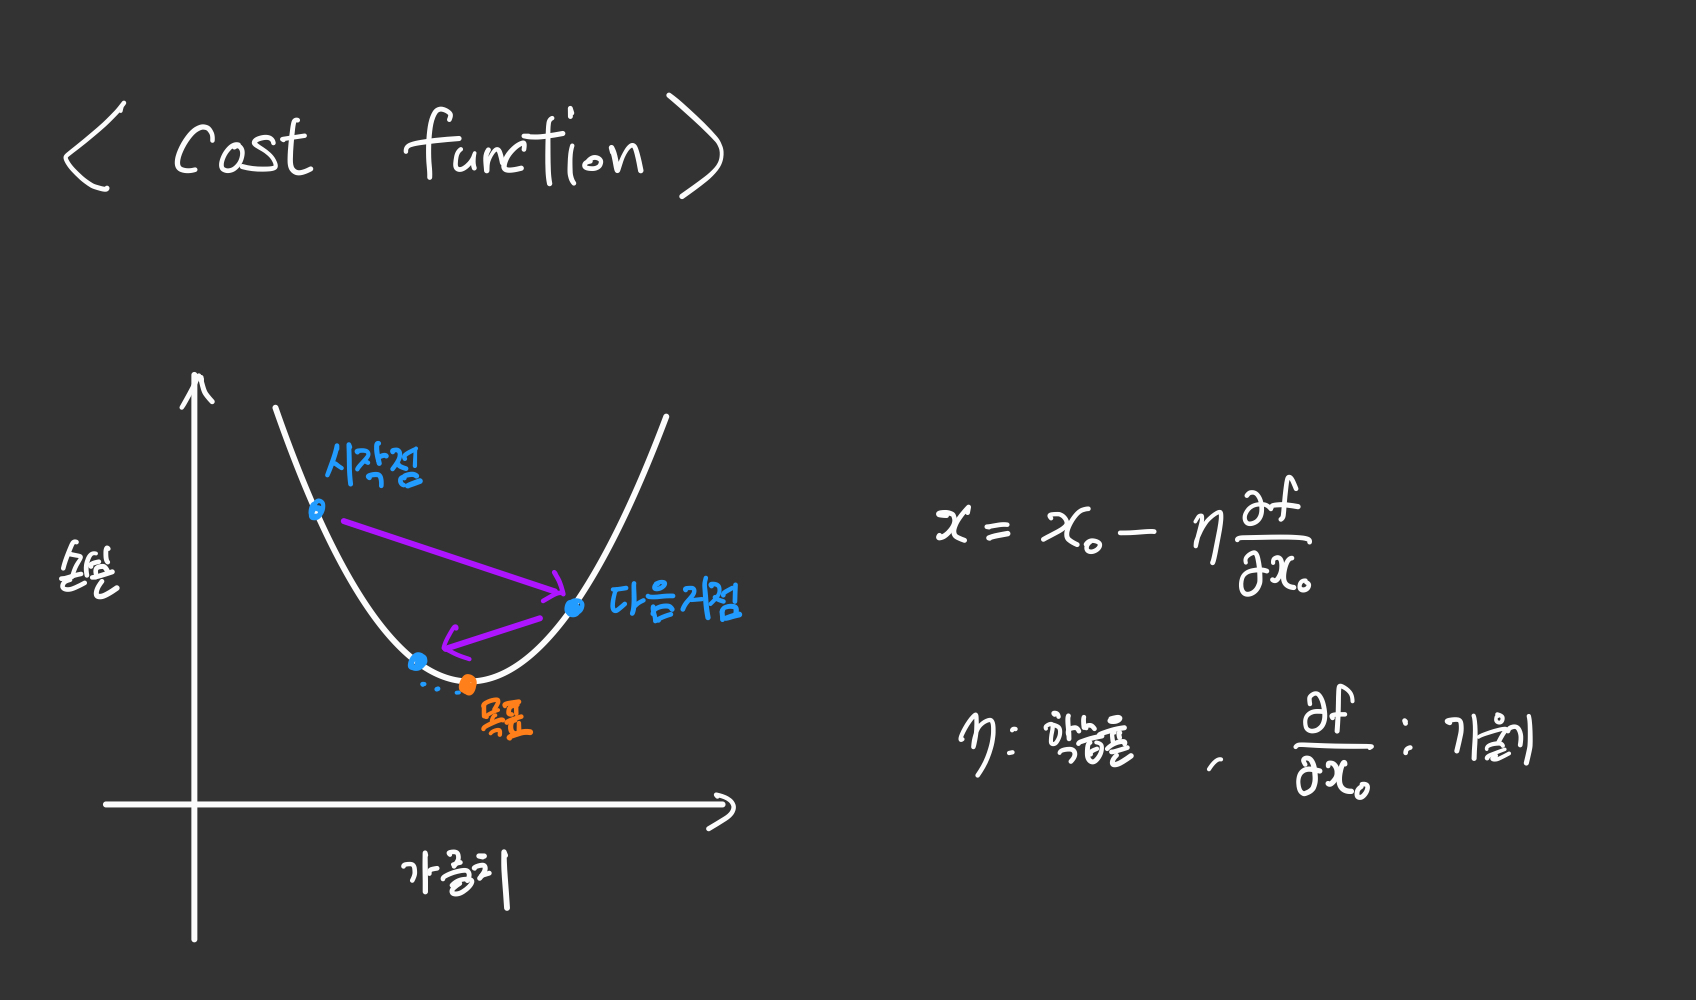 < Cost function >
시작점
손실
다음지점
목표
가중치
x = x₀ - η ∂f/∂x₀
η : 학습률 , ∂f/∂x₀ : 기울기